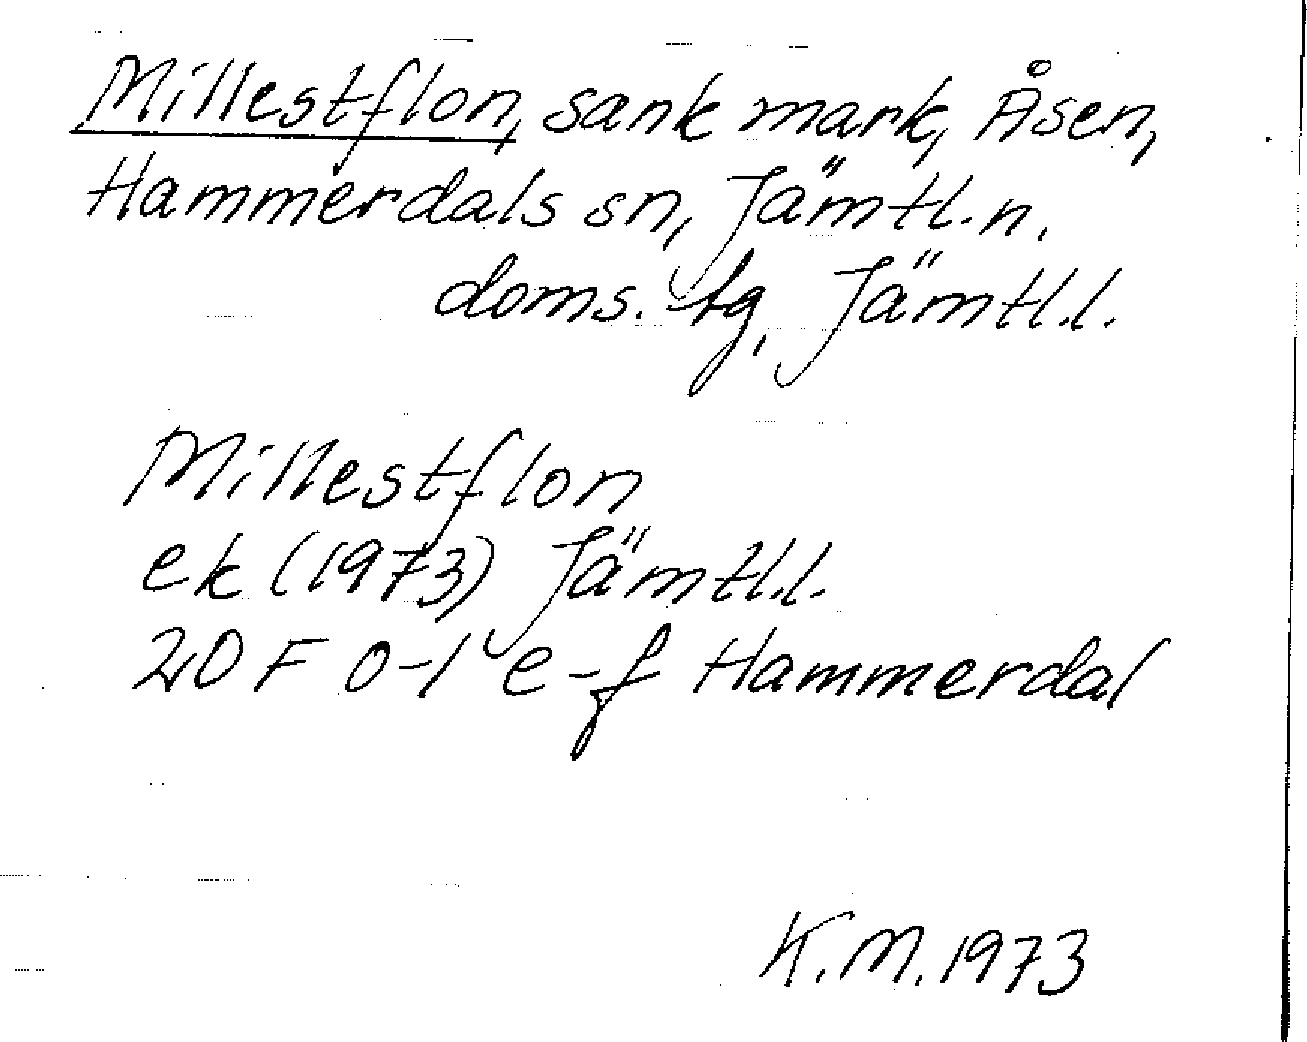 Millestflon, sank mark, Åsen,
Hammerdals sn, Jämtl. n.
doms. tg, Jämtl. l.
Millestflon
ek (1973) Jämtl. l.
20 F 0-1 e-f Hammerdal
K. M. 1973